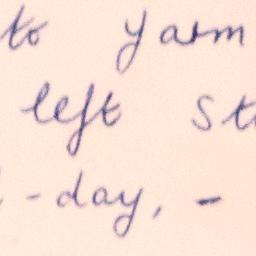 to Yarm
left St
-day, -